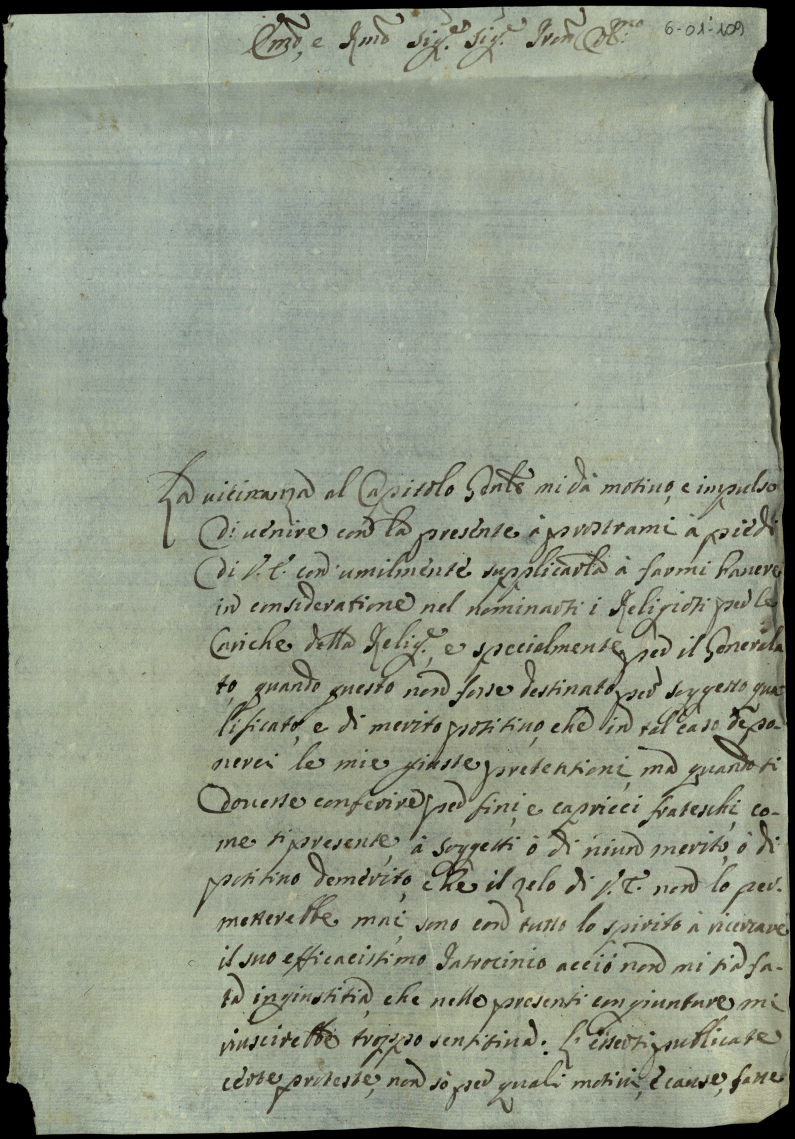 Em̃o, e Rmõ Sig.re Sig.r Pron Col.mo
6-01-109
La vicinanza al Capitolo Gen̄le mi dà motivo, e impulso
di venire con la presente à prostrarmi à piedi
di V. E. con umilmente supplicarla à farmi havere
in consideratione nel nominarsi i Religiosi per le
Cariche della Relig.e, e specialmente per il Generala
to, quando questo non fosse destinato per soggetto qua
lificato, e di merito positivo, che in tal caso depo-
nerei le mie giuste pretentioni, ma quando si
dovesse conferire per fini, e capricci frateschi, co-
me si presente, à soggetti, ò di niun merito, ò di
positivo demerito, che il zelo di V. E. non lo per-
metterebbe mai, sono con tutto lo spirito à ricercare
il suo efficacissimo Patrocinio acciò non mi sia fa-
ta ingiustitia, che nelle presenti congiunture mi
riuscirebbe troppo sensitiva. L'essersi publicate
certe proteste, non sò per quali motivi, e cause, fatte